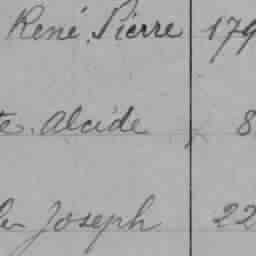 René Pierre 179
te. Alcide 8
Joseph 22